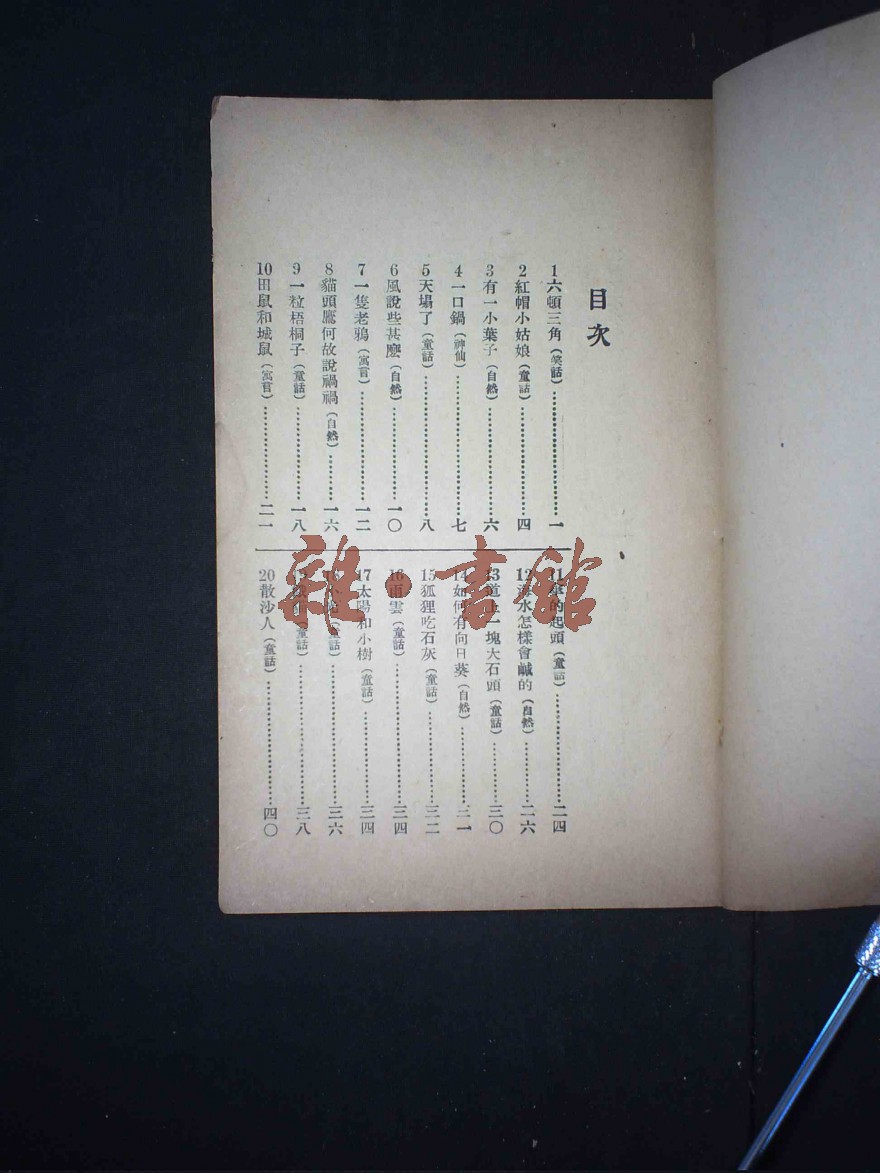 目次
1六頓三角(笑話)……一
2紅帽小姑娘(童話)……四
3有一小葉子(自然)……六
4一口鍋(神仙)……七
5天塌了(童話)……八
6風說些甚麼(自然)……一〇
7一隻老鴉(寓言)……一二
8貓頭鷹何故說禍禍(自然)……一六
9一粒梧桐子(童話)……一八
10田鼠和城鼠(寓言)……二一
11的起頭(童話)……二四
12海水怎樣會鹹的(自然)……二六
13道上一塊大石頭(童話)……三〇
14如何有向日葵(自然)……三一
15狐狸吃石灰(童話)……三二
16雨雲(童話)……三四
17太陽和小樹(童話)……三四
(童話)……三六
(童話)……三八
20散沙人(童話)……四〇
雜·書館